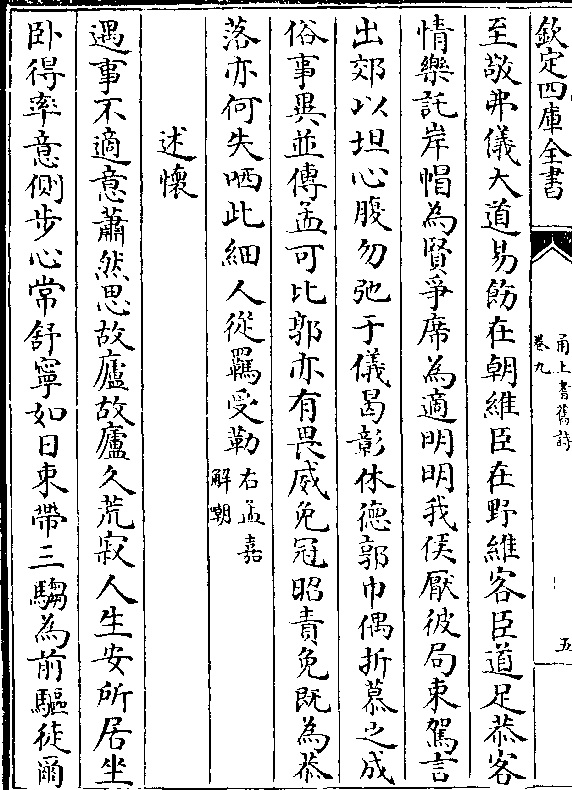 欽定四庫全書
甬上耆舊詩
卷九
五
至敬弗儀大道易飭在朝維臣在野維客臣道足恭客
情樂託岸幘為賢爭席為適明明我侯厭彼局束駕言
出郊以坦心腹勿弛于儀曷彰休德郭巾偶折慕之成
俗事異並傳孟可比郭亦有畏威免冠昭責免既為恭
落亦何失哂此細人從羈受勒
右孟嘉
解嘲
述懷
遇事不適意蕭然思故廬故廬久荒寂人生安所居坐
卧得率意側步心常舒寧如日束帶三騶為前驅徒爾